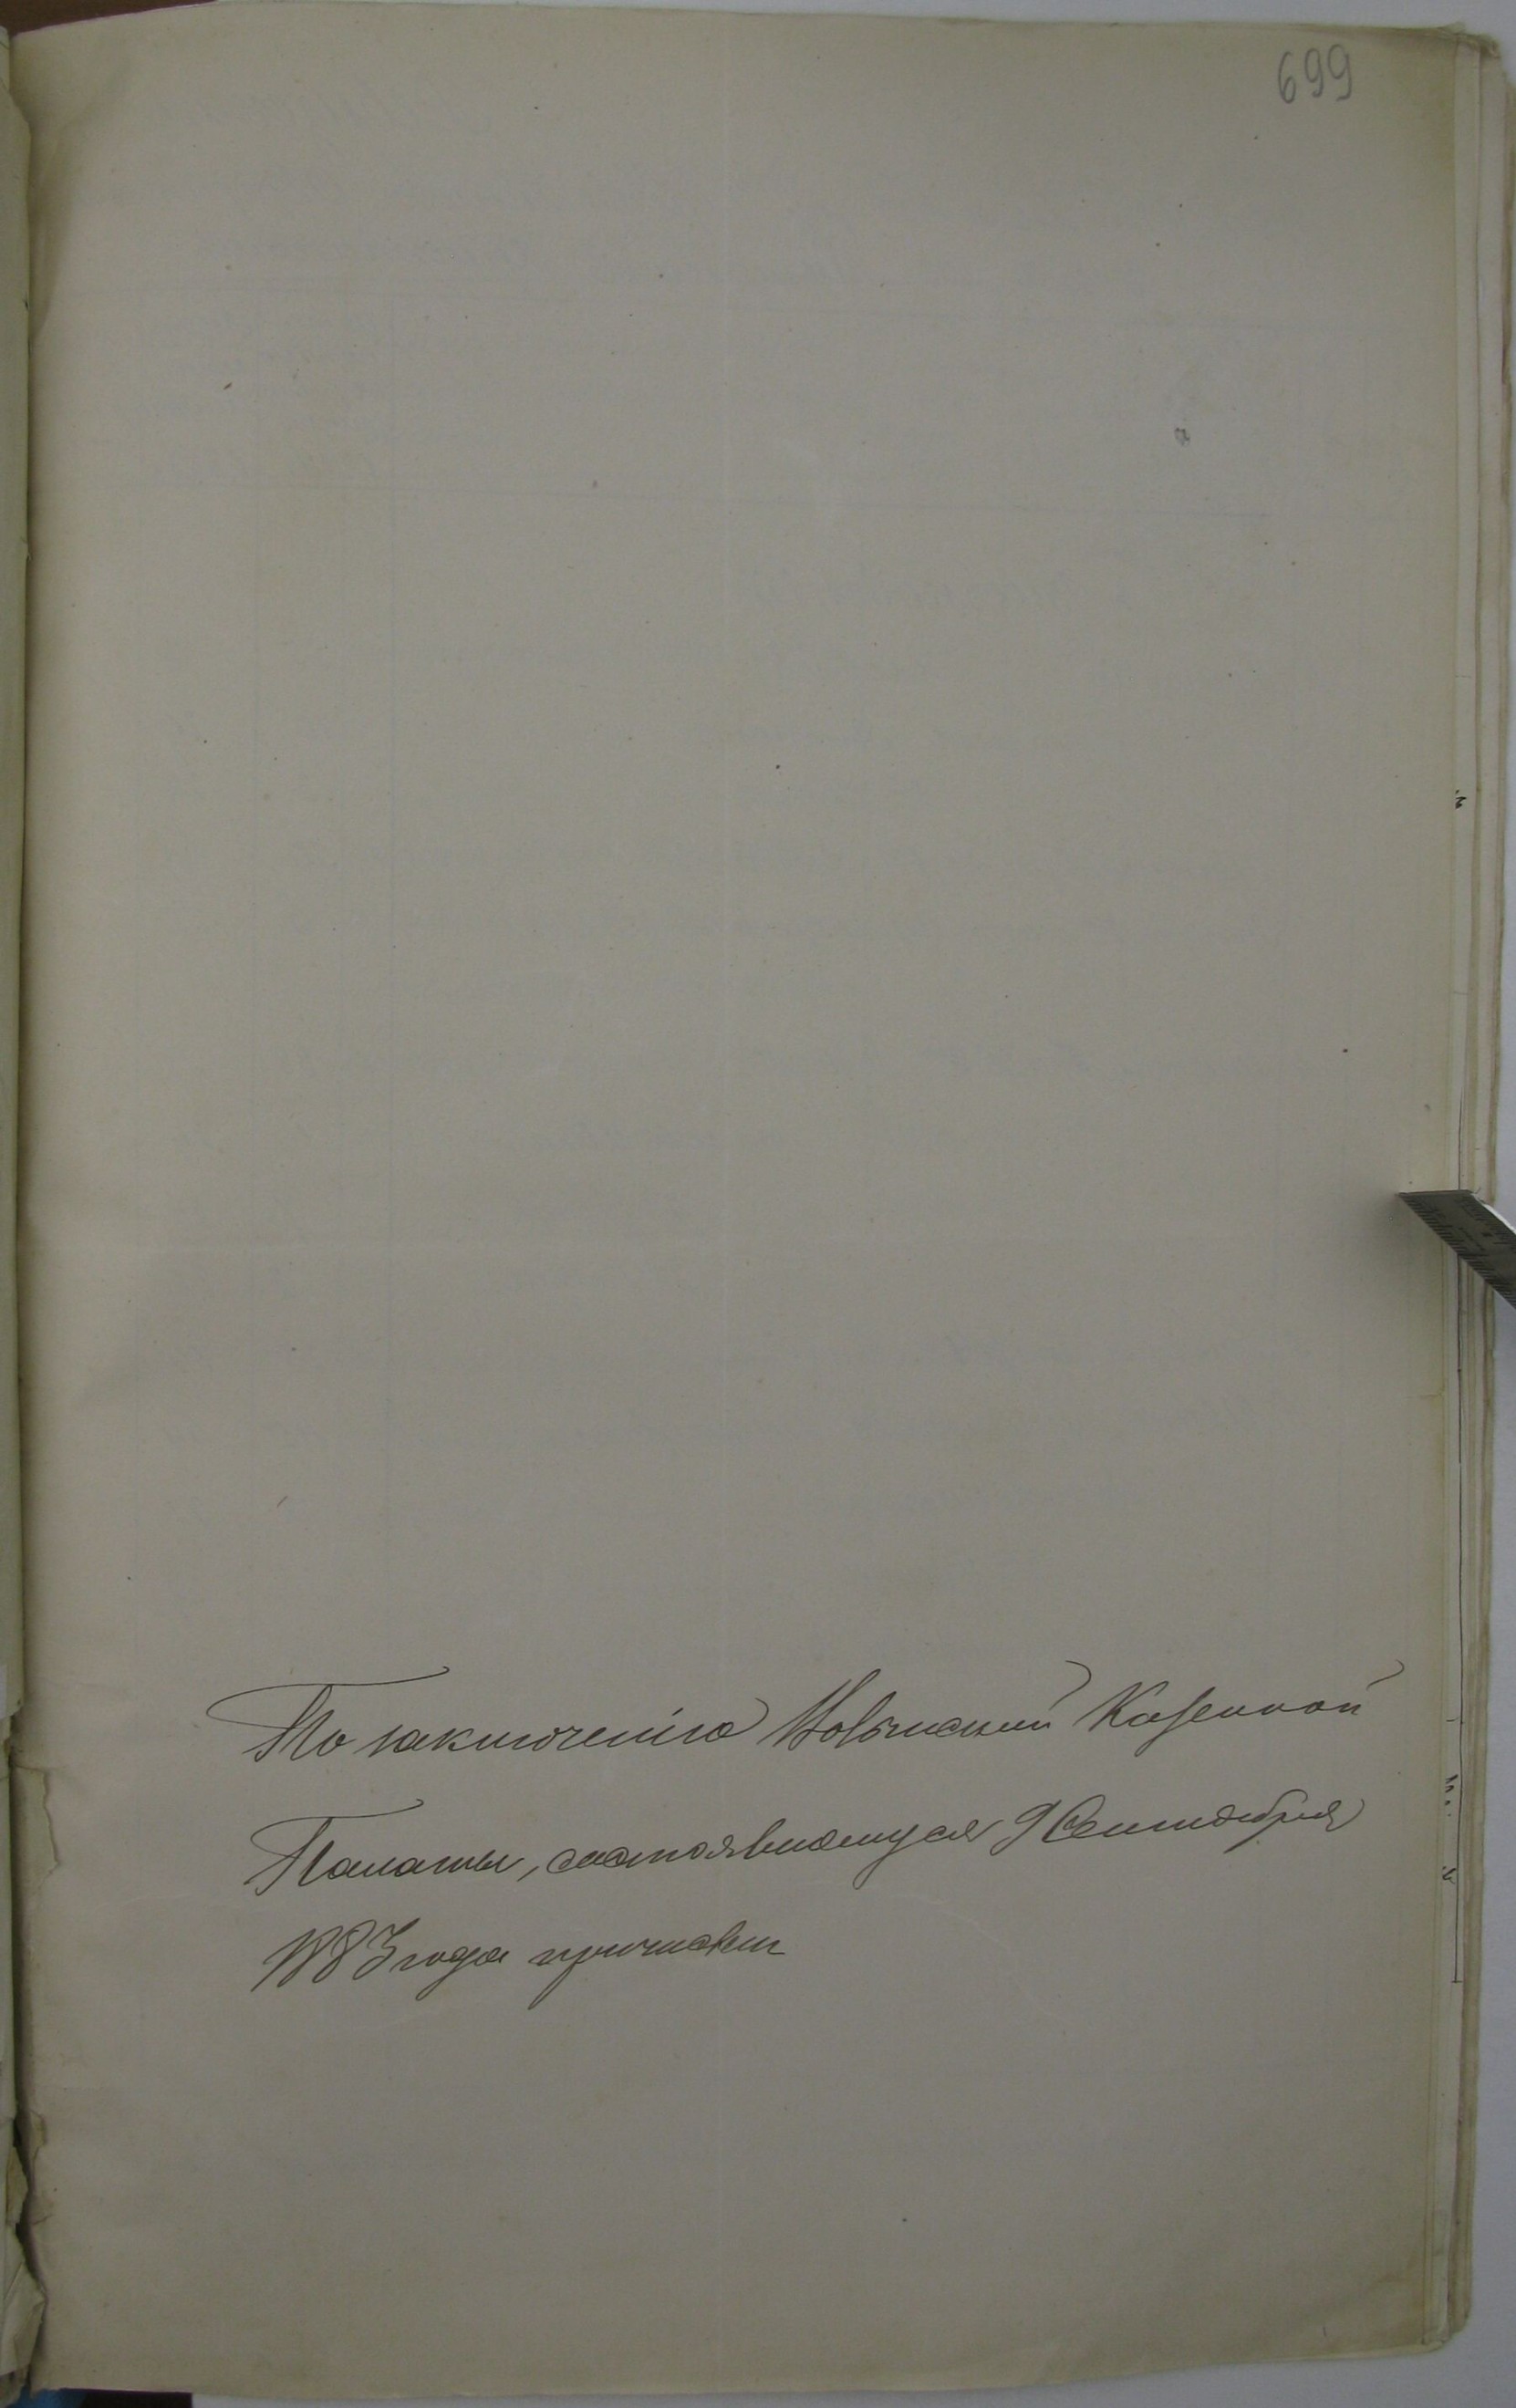 699
По заключенію Волынской Казенной
Палаты, состоявшемуся 9 Сентября
1883 года